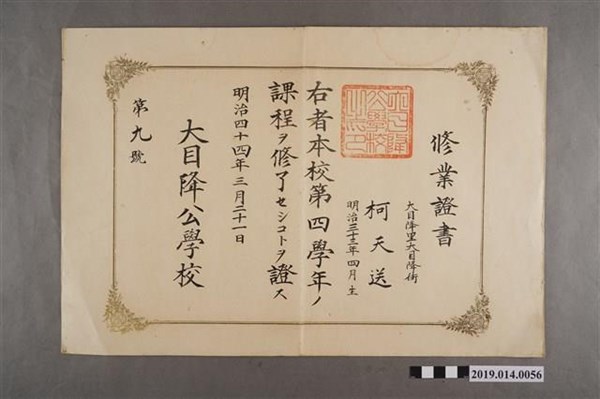 修業證書
大目降里大目降街
柯天送
明治三十三年四月生
右者本校第四學年ノ
課程ヲ修了セシコトヲ證ス
明治四十四年三月二十一日
大目降公學校
第九號
大目降公學校之印
2019.014.0056